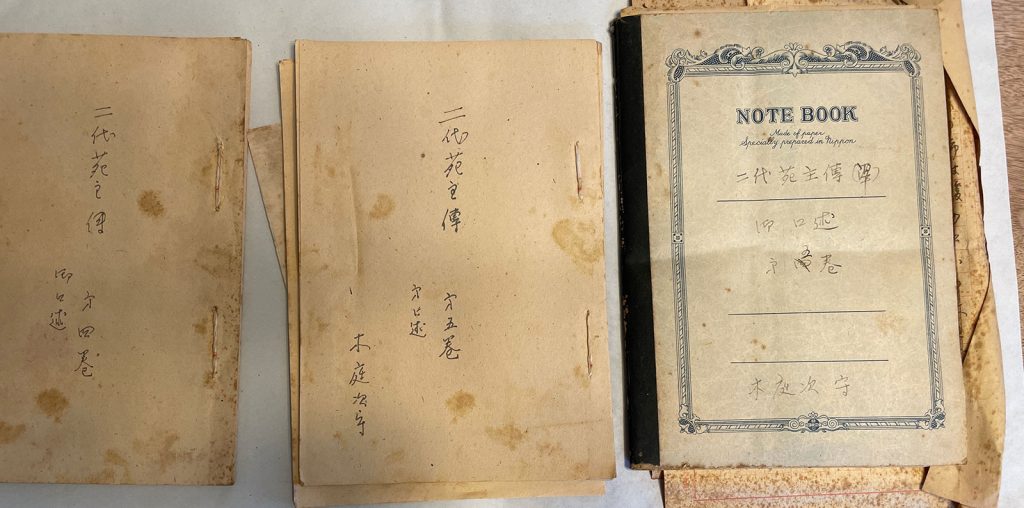 二代苑主傳
第四巻
御口述
二代苑主傳
第五巻
御口述
木庭次守
NOTE BOOK
Made of paper
Specially prepared in Nippon
二代苑主傳
御口述
第五巻
木庭次守